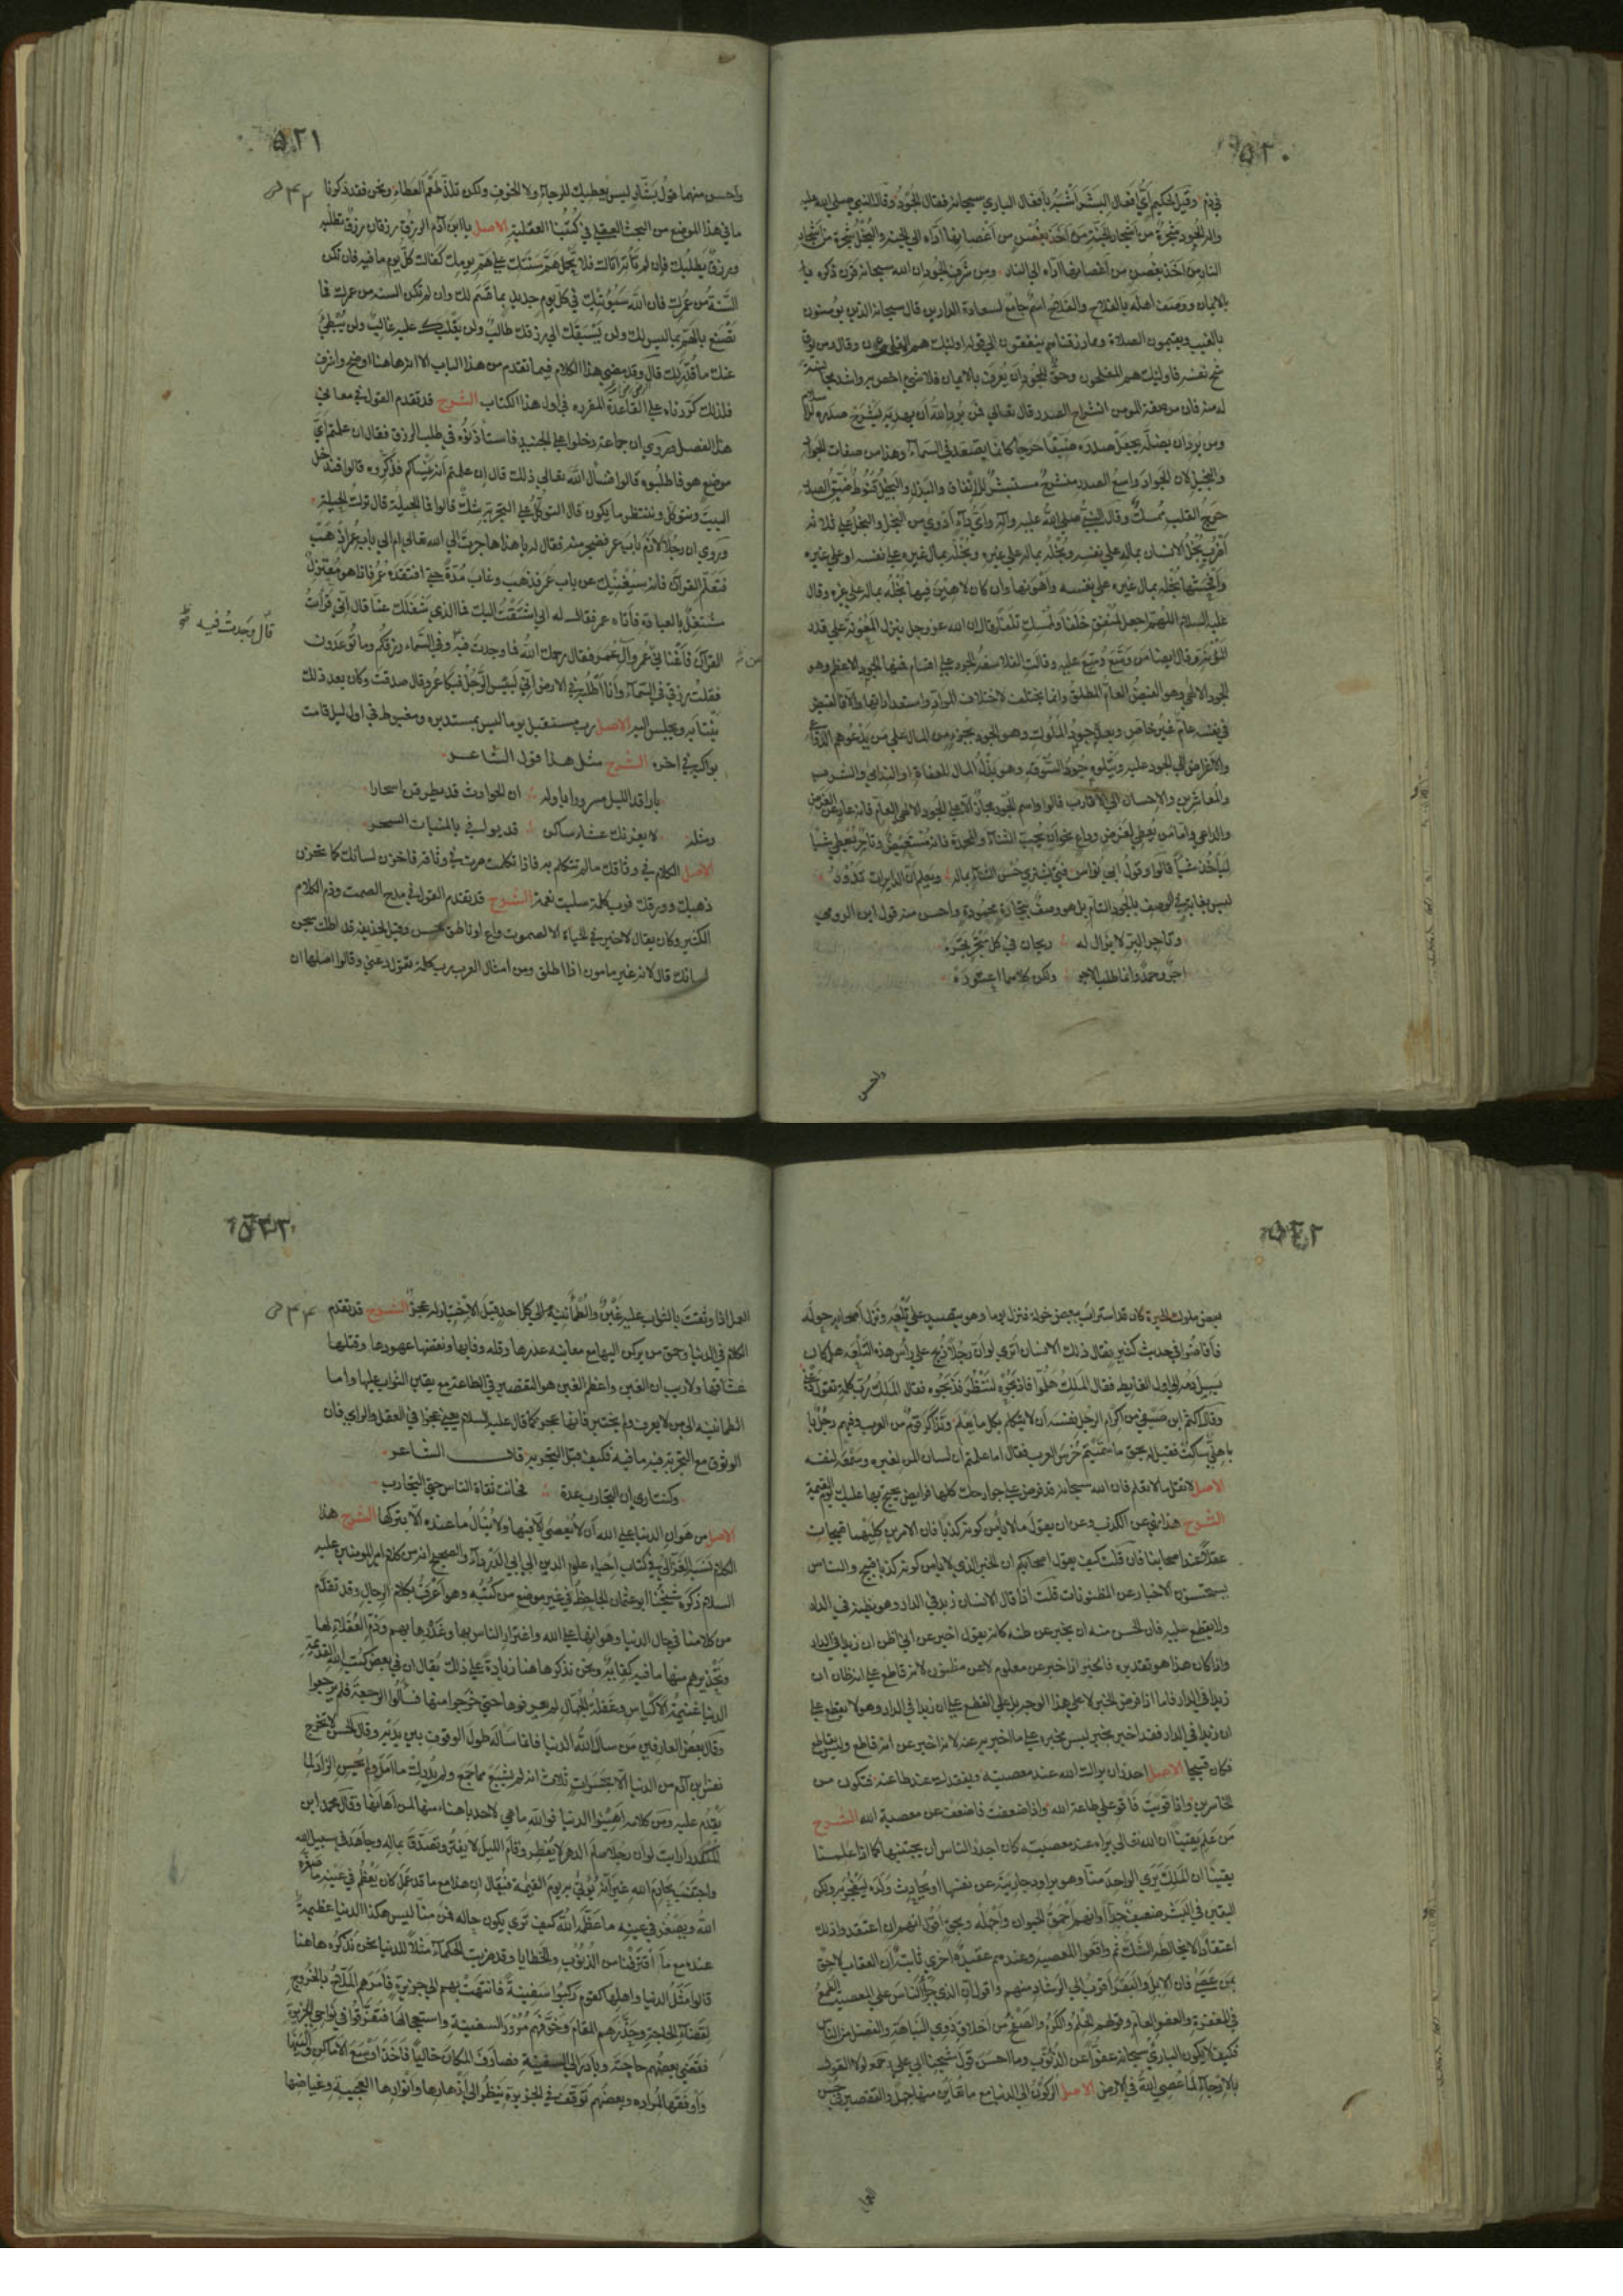 ٥٢٠
في ذم وقيل لحكيم أي أفعال البشر أشبه بأفعال الباري سبحانه فقال الجود وقال النبي صلى الله عليه
وآله الجود شجرة من أشجار الجنة من أخذ بغصن من أغصانها أداه الى الجنة والبخل شجرة من أشجار
النار من اخذ بغصن من أغصانها أداه الى النار ومن شرف الجود ان الله سبحانه قرن ذكره
بالايمان ووصف أهله بالفلاح والفلاح اسم جامع لسعادة الدارين قال سبحانه الذين يؤمنون
بالغيب ويقيمون الصلاة ومما رزقناهم ينفقون الى قوله اولئك هم المفلحون وقال ومن يوق
شح نفسه فاولئك هم المفلحون وحق للجود أن يقرن بالايمان فلا شيء اخص به واشد مجانسة
له منه فان من صفة المومن انشراح الصدر وقال تعالى فمن يرد الله أن يهديه يشرح صدره للاسلام
ومن يرد ان يضله يجعل صدره ضيقا حرجا كانما يصعد في السماء وهذا من صفات الجواد
والبخيل لان الجواد واسع الصدر منشرح مستبشر للإنفاق والبذل والبخيل قنوط ضيق الصدر
حرج القلب ممسك وقال النبي صلى الله عليه وآله وأي داء أدوى من البخل والبخل على ثلاثة
أضرب بخل الانسان بماله على نفسه وبخله بماله على غيره وبخله بمال غيره على نفسه او على غيره
وأفحشها بخله بمال غيره على نفسه وأهونها وان كان لا هين فيها بخله بماله على غيره وقال
عليه السلام اللهم اجعل لمنفق خلفا ولممسك تلفا وقال ان الله عز وجل ينزل المعونة على قدر
المؤنة وقال ايضا من وسع وسع عليه وقالت الفلاسفة الجود على اقسام فمنها الجود الاعظم وهو
الجود الالهي وهو الفيض العام المطلق وانما يختلف لاختلاف المواد واستعداداتها والا فالفيض
في نفسه عام غير خاص وبعده جود الملوك وهو الجود بجزء من المال على من يدعوهم الدواعي
والأغراض الى الجود عليه ويتلوه جود السوقة وهو بذل المال للعفاة او الندامى والشرب
والمعاشرين والإحسان الى الأقارب قالوا واسم الجود مجاز الا على الجود الالهي العام فانه عار عن الغرض
والداعي واما من يعطي لغرض وداع نحو أن يحب الثناء والمحمدة فانه مستعيض وتاجر يعطي شيئا
ليأخذ شيئا قالوا وقول ابي نواس فتى يشتري حسن الثناء بماله ويعلم أن الدايرات تدور
ليس بغاية في الوصف بالجود التام بل هو وصف بتجارة محمودة واحسن منه قول ابن الرومي
وتاجر البر لا يزال له ربحان في كل متجر تجره
اجر وحمد وانما طلب الاجر ولكن كلاهما اعتوره
واحسن
٥٢١
واحسن منهما قول بشار ليس يعطيك للرجاء ولا الخوف ولكن يلذ طعم العطاء ونحن فقد ذكرنا
ما في هذا الموضع من البحث العقلي في كتبنا العقلية الاصل يا ابن آدم الرزق رزقان رزق تطلبه
ورزق يطلبك فإن لم تأته اتاك فلا تحمل هم سنتك على هم يومك كفاك كل يوم ما فيه فان تكن
السنة من عمرك فان الله سيؤتيك في كل يوم جديد بما قسم لك وان لم تكن السنة من عمرك فما
تصنع بالهم بما ليس لك ولن يسبقك الى رزقك طالب ولن يغلبك عليه غالب ولن يبطئ
عنك ما قدر لك قال وقد مضى هذا الكلام فيما تقدم من هذا الباب الا انه هاهنا اوضح واشرف
فلذلك كررناه على القاعدة المقررة في اول هذا الكتاب الشرح قد تقدم القول في معاني
هذا الفصل وروى ان جماعة دخلوا على الجنيد فاستأذنوه في طلب الرزق فقال ان علمتم أي
موضع هو فاطلبوه قالوا فنسأل الله تعالى ذلك قال إن علمتم أنه نسيكم فذكروه قالوا فندخل
البيت ونتوكل وننتظر ما يكون قال التوكل على التجربة شك قالوا فما الحيلة قال ترك الحيلة
وروى ان رجلا لازم باب عمر فضجر منه فقال له يا هذا هاجرت الى الله تعالى ام الى باب عمر اذهب
فتعلم القرآن فانه سيغنيك عن باب عمر فذهب وغاب مدة حتى افتقده عمر فاذا هو معتزل
مشتغل بالعبادة فأتاه عمر فقال له اني اشتقت اليك فما الذي شغلك عنا قال إني قرأت
القرآن فأغناني عن عمر وآل عمر فقال رحمك الله فما وجدت فيه وفي السماء رزقكم وما توعدون
قال وجدت فيه
فقلت رزقي في السماء وأنا أطلبه في الارض اني لبئس الرجل فبكى عمر وقال صدقت وكان بعد ذلك
ينتابه ويجلس اليه الاصل رب مستقبل يوما ليس بمستدبره ومغبوط في اول ليل قامت
بواكيه في اخره الشرح مثل هذا قول الشاعر
يا راقد الليل مسرورا باوله ان الحوادث قد يطرقن اسحارا
ومثله لا يغرنك عشاء ساكن قد يوافي بالمنيات السحر
الاصل الكلام في وثاقك ما لم تتكلم به فاذا تكلمت صرت في وثاقه فاخزن لسانك كما تخزن
ذهبك وورقك فرب كلمة سلبت نعمة الشرح قد تقدم القول في مدح الصمت وذم الكلام
الكثير وكان يقال لا خير في الحياة الا لصموت واع او ناطق محسن وقيل لحذيفة قد اطلت سجن
لسانك قال لانه غير مامون اذا اطلق ومن امثال العرب رب كلمة تقول دعني وقالوا اصلها ان
٥٢٢
بعض ملوك الحيرة كان قد استراب ببعض خوله فنزل يوما وهو يتصيد على تلعة ونزل أصحابه حوله
فأفاضوا في حديث كثير فقال ذلك الانسان أترى لو أن رجلا ذبح على رأس هذه التلعة هل كان
يسيل دمه الى اول الغايط فقال الملك هلموا فاذبحوه لننظر فذبحوه فقال الملك رب كلمة تقول دعني
وقال اكثم ابن صيفي من إكرام الرجل نفسه أن لا يتكلم بكل ما يعلم وتذاكر قوم من العرب وفيهم رجل
باهلي ساكت فقيل له بحق ما سميتم خرس العرب فقال اما علمتم ان لسان المرء لغيره وسمعه لنفسه
الاصل لا تقل ما لا تعلم فان الله سبحانه قد فرض على جوارحك كلها فرايض يحتج بها عليك يوم القيمة
الشرح هذا نهي عن الكذب وعن ان يقول ما لا يأمن كونه كذبا فان الامرين كليهما قبيحان
عقلا عند اصحابنا فان قلت كيف يقول اصحابكم ان الخبر الذي لا يامن كونه كذبا قبيح والناس
يستحسنون الاخبار عن المظنونات قلت اذا قال الانسان زيد في الدار وهو يظنه في الدار
ولا يقطع عليه فان الحسن منه ان يخبر عن ظنه كانه يقول اخبر عن اني اظن ان زيدا في الدار
واذا كان هذا هو تقديره فالخبر اذا خبر عن معلوم لا عن مظنون لانه قاطع على انه ظان ان
زيدا في الدار فاما اذا فرض الخبر لا على هذا الوجه بل على القطع على ان زيدا في الدار وهو لا يقطع على
ان زيدا في الدار فقد اخبر بخبر ليس بخبره على ما اخبر به عنه لانه اخبر عن انه قاطع وليس بقاطع
فكان قبيحا الاصل احذر ان يراك الله عند معصيته ويفقدك عند طاعته فتكون من
الخاسرين واذا قويت فاقو على طاعة الله واذا ضعفت فاضعف عن معصية الله الشرح
من علم يقينا ان الله تعالى يراه عند معصيته كان اجدر الناس أن يجتنبها كما اذا علمنا
يقينا ان الملك يرى الواحد منا وهو يراود جاريته عن نفسها او يحادث ولده ليفجر به ولكن
اليقين في البشر ضعيف جدا او انهم أحمق الحيوان وأجهله وبحق أقول انهم ان اعتقدوا ذلك
اعتقادا لا يخالطه الشك ثم واقعوا المعصية وعندهم عقيدة أخرى ثابتة أن العقاب لاحق
بمن عصى فان الابل والبقر اقرب الى الرشاد منهم واقول ان الذي جرأ الناس على المعصية الطمع
في المغفرة والعفو العام وقولهم الحلم والكرم والصفح من أخلاق ذوي النباهة والفضل من الناس
فكيف لا يكون الباري سبحانه عفوا عن الذنوب وما احسن قول شيخنا ابي علي رحمه لولا القول
بالارجاء لما عصي الله في الارض الاصل الركون الى الدنيا مع ما تعاين منها جهل والتقصير في حسن
العمل
٥٢٣
العمل اذا وثقت بالثواب عليه غبن والطمأنينة الى كل احد قبل الاختبار له عجز الشرح قد تقدم
الكلام في الدنيا وحمق من يركن اليها مع معاينة غدرها وقلة وفايها ونقضها عهودها وقتلها
عشاقها ولا ريب ان الغبن واعظم الغبن هو التقصير في الطاعة مع يقين الثواب عليها واما
الطمانينة الى من لا يعرف ولم يختبر فانها عجز كما قال عليه السلام يعني عجزا في العقل والراي فان
الوثوق مع التجربة فيه ما فيه فكيف قبل التجربة قال الشاعر
وكنت ارى ان التجارب عدة فخانت ثقاة الناس حتى التجارب
الاصل من هوان الدنيا على الله أن لا يعصى الا فيها ولا ينال ما عنده الا بتركها الشرح هذا
الكلام نسبه الغزالي في كتاب احياء علوم الدين الى ابي الدرداء والصحيح انه من كلام امير المومنين عليه
السلام ذكره شيخنا ابو عثمان الجاحظ في غير موضع من كتبه وهو أعرف بكلام الرجال وقد تقدم
من كلامنا في حال الدنيا وهوانها على الله واغترار الناس بها وغدرها بهم وذم العقلاء لها
وتحذيرهم منها ما فيه كفاية ونحن نذكر هاهنا زيادة على ذلك يقال ان في بعض كتب الله القديمة
الدنيا غنيمة الاكياس وغفلة الجهال لم يعرفوها حتى خرجوا منها فسألوا الرجعة فلم يرجعوا
وقال بعض العارفين من سأل الله الدنيا فانما سأله طول الوقوف بين يديه وقال الحسن لا تخرج
نفس ابن آدم من الدنيا الا بحسرات ثلاث انه لم يشبع مما جمع ولم يدرك ما امل ولم يحسن الزاد لما
يقدم عليه ومن كلامه أهينوا الدنيا فوالله ما هي لاحد باهنأ منها لمن أهانها وقال محمد ابن
المنكدر ارايت لو ان رجلا صام الدهر لا يفطر وقام الليل لا يفتر وتصدق بماله وجاهد في سبيل الله
واجتنب محارم الله غير أنه يؤتى به يوم القيمة فيقال ان هذا مع ما قد عمل كان يعظم في عينه ما صغره
الله ويصغر في عينه ما عظمه الله كيف ترى يكون حاله فمن منا ليس هكذا الدنيا عظيمة
عنده مع ما أقترفنا من الذنوب والخطايا وقد ضربت الحكماء مثلا للدنيا نحن نذكره هاهنا
قالوا مثل الدنيا واهلها كقوم ركبوا سفينة فانتهت بهم الى جزيرة فأمرهم الملاح بالخروج
لقضاء الحاجة وحذرهم المقام وخوفهم مرور السفينة واستعجالها فتفرقوا في نواحي الجزيرة
فقضى بعضهم حاجته وبادر الى السفينة فصادف المكان خاليا فأخذ اوسع الاماكن وألينها
وأوفقها لمراده وبعضهم توقف في الجزيرة ينظر الى أزهارها وأنوارها العجيبة وغياضها